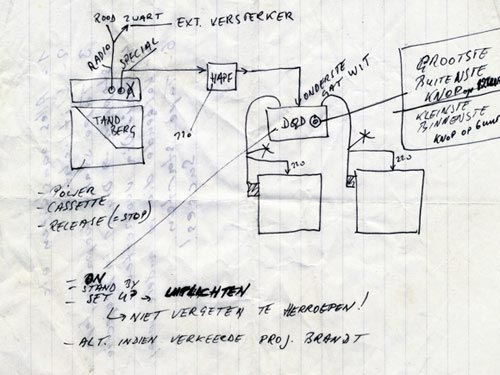 ROOD ZWART
EXT. VERSTERKER
RADIO
SPECIAL
HAPÉ
ONDERSTE
GAT WIT
TAND
BERG
220
DQD
220
220
GROOTSTE
BUITENSTE
KNOP op
KLEINSTE
BINNENSTE
KNOP OP
- POWER
- CASSETTE
- RELEASE (=STOP)
- ON
- STAND BY
- SET UP → UITLICHTEN
↳ NIET VERGETEN TE HERROEPEN!
- ALT. INDIEN VERKEERDE PROJ. BRANDT